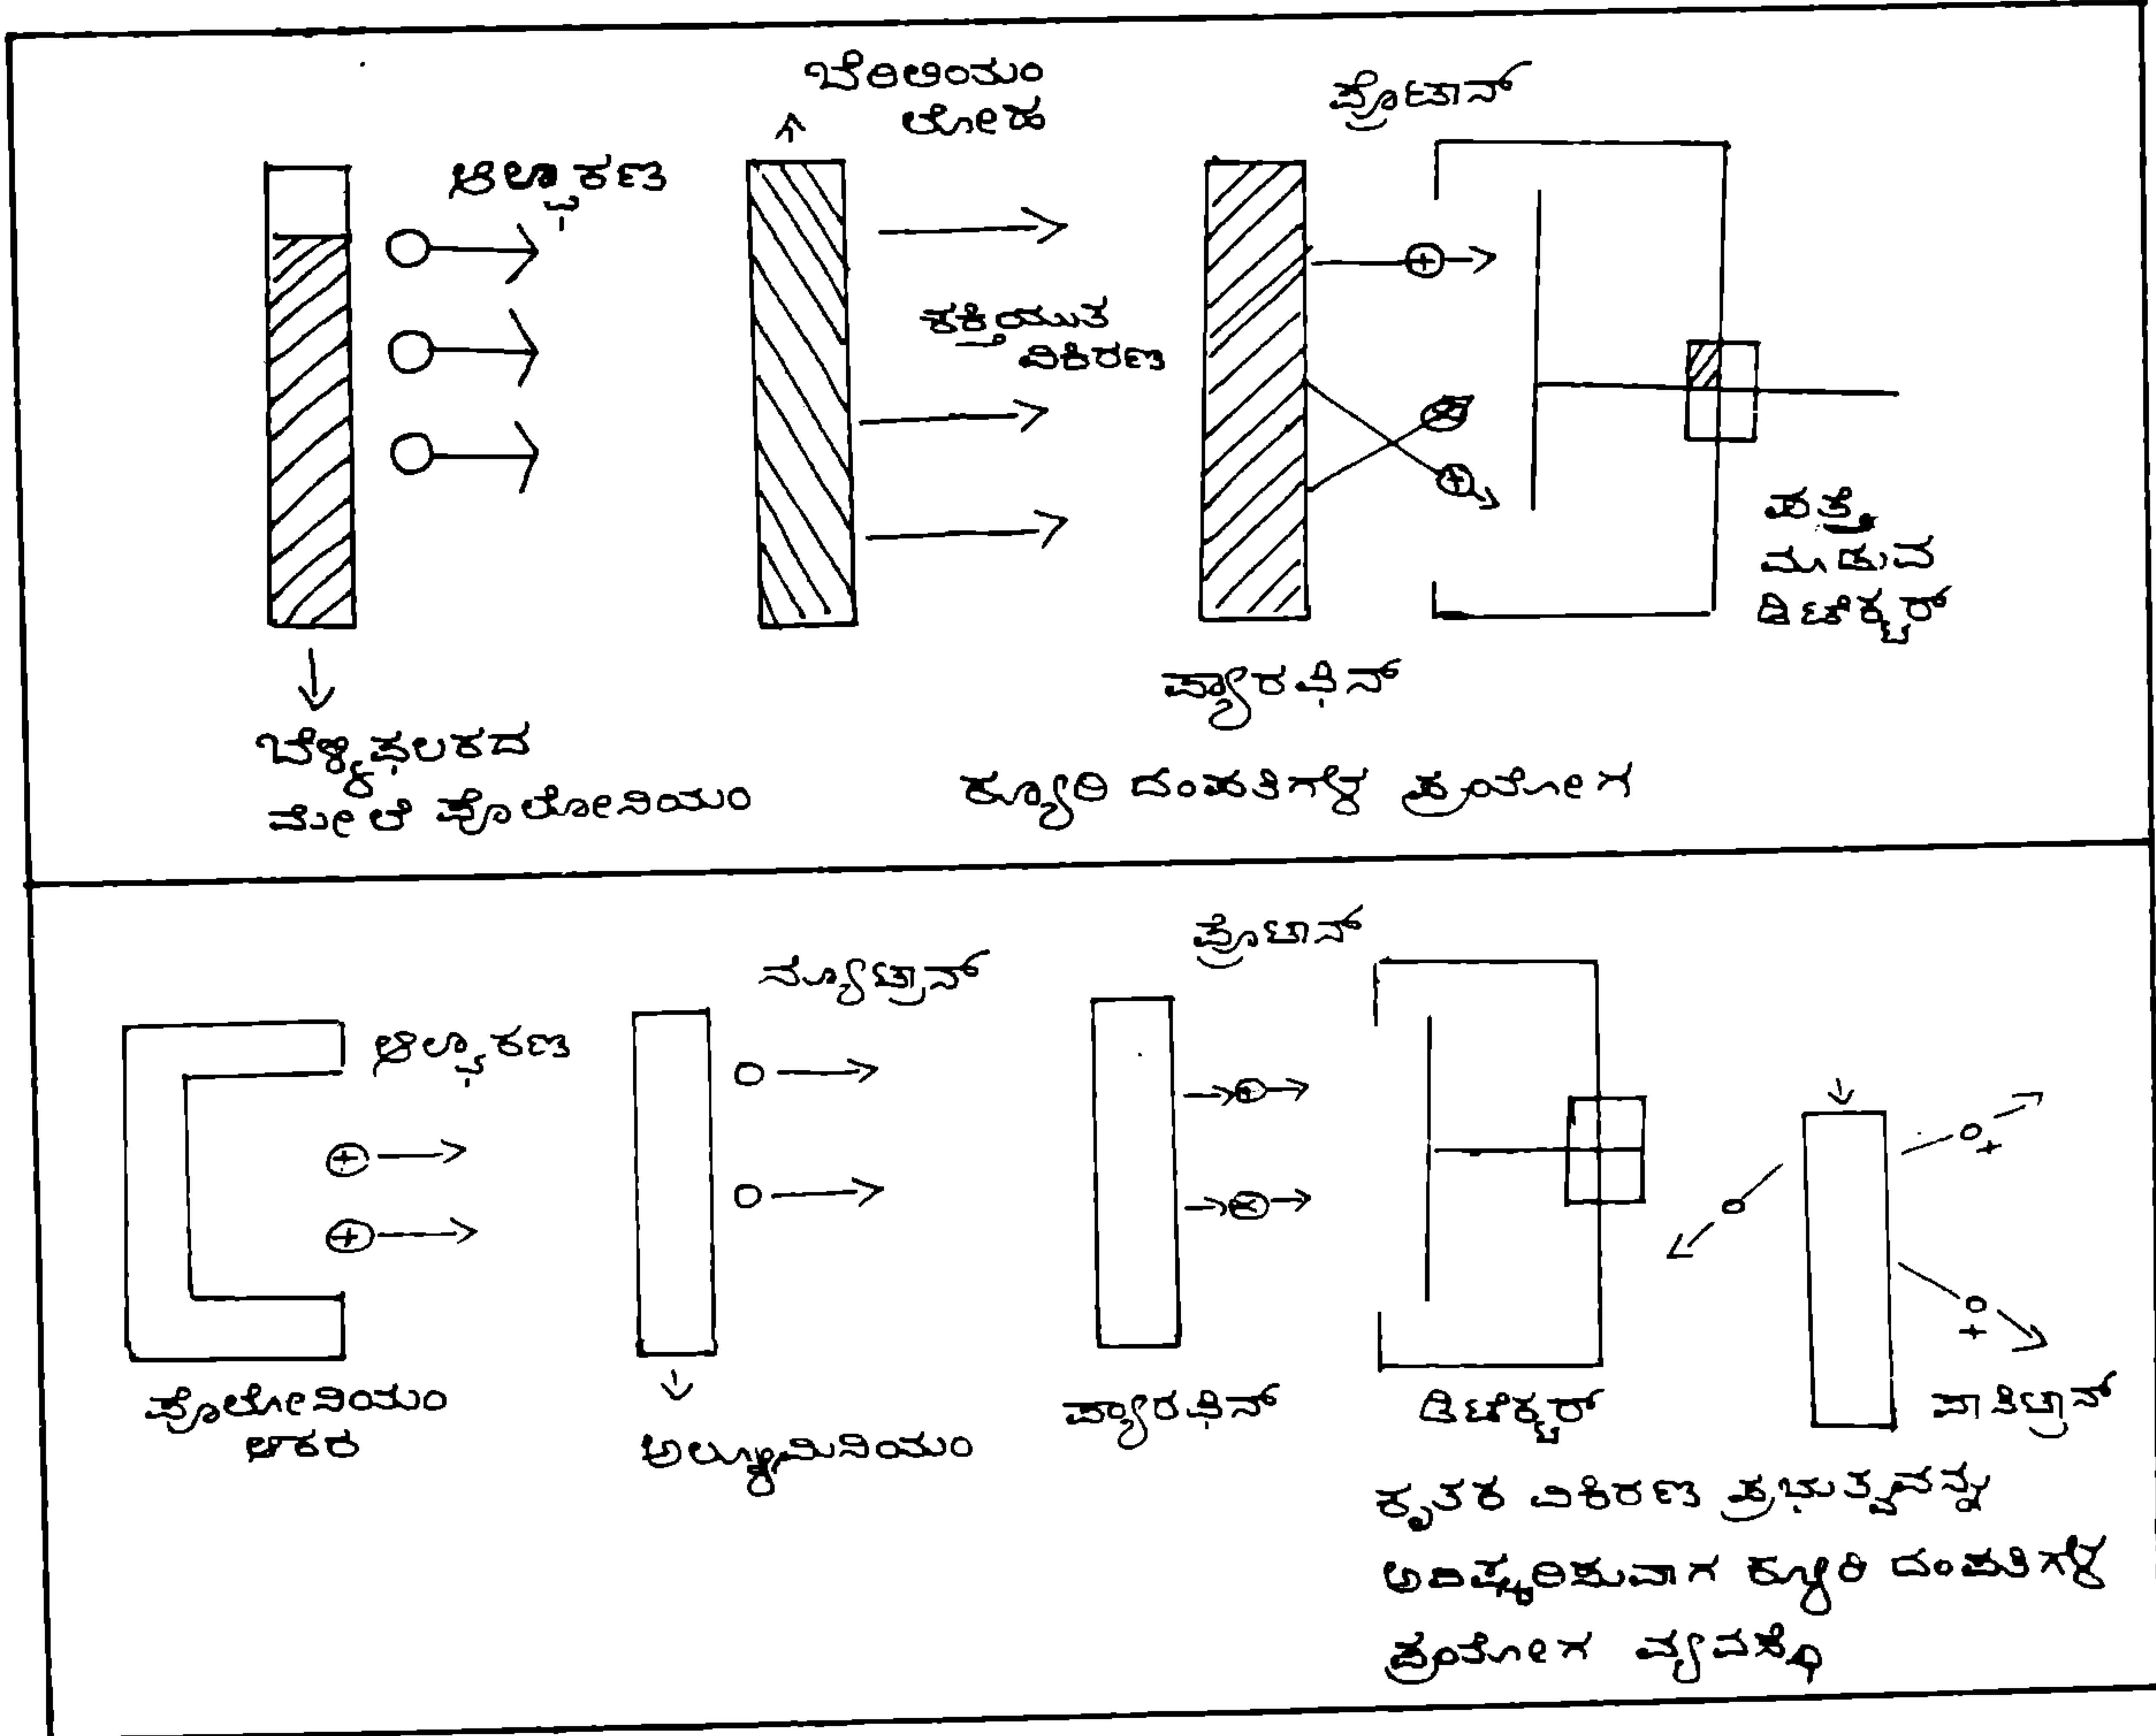 ಬೆರಿಲಿಯಂ
ಲೋಹ
ಪ್ರೊಟಾನ್
ಆಲ್ಫಾಕಣ
ಶಕ್ತಿಯುತ
ವಿಕಿರಣ
ಪತ್ತೆ
ಮಾಡುವ
ಡಿಟೆಕ್ಟರ್
ಪ್ಯಾರಫಿನ್
ಬೆಳ್ಳಿಫಲಕದ
ಮೇಲೆ ಪೊಲೋನಿಯಂ
ಕ್ಯೂರಿ ದಂಪತಿಗಳ ಪ್ರಯೋಗ
ಪ್ರೊಟಾನ್
ನ್ಯೂಟ್ರಾನ್
ಆಲ್ಫಾಕಣ
ಪೊಲೋನಿಯಂ
ಆಕರ
ಅಲ್ಯುಮಿನಿಯಂ
ಪ್ಯಾರಫಿನ್
ಡಿಟೆಕ್ಟರ್
ಪಾಸಿಟ್ರಾನ್
ಕೃತಕ ವಿಕಿರಣ ಪ್ರಭುತ್ವವನ್ನು
ಅವಿಷ್ಕರಿಸುವಾಗ ಕ್ಯೂರಿ ದಂಪತಿಗಳ
ಪ್ರಯೋಗ ವ್ಯವಸ್ಥೆ